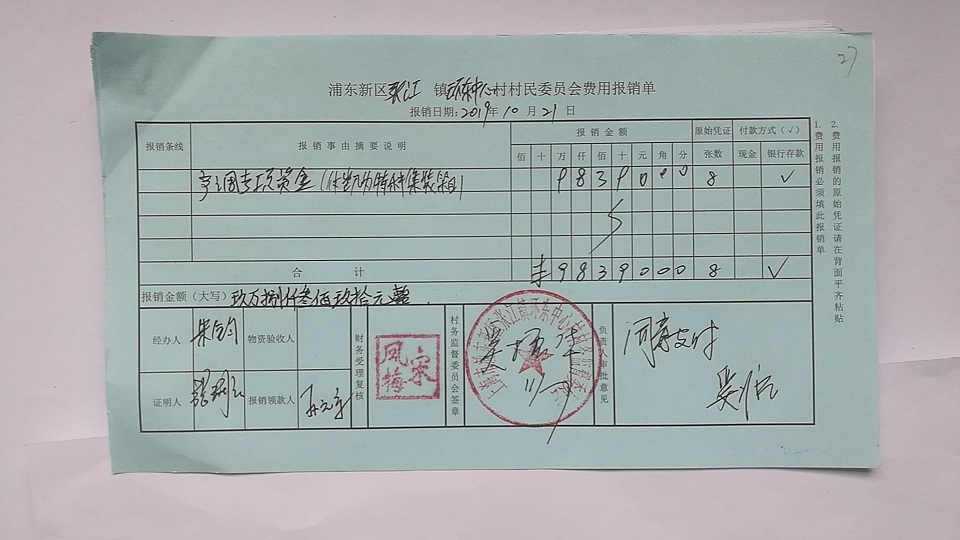 27
浦东新区张江 镇环东中心村村民委员会费用报销单
报销日期：2019年10月21日
报销条线 报销事由摘要说明 报销金额 原始凭证 付款方式（√）
佰 十 万 仟 佰 十 元 角 分 张数 现金 银行存款
专项资金 9 8 3 9 0 0 0 8 √
合 计 ¥ 9 8 3 9 0 0 0 8 √
报销金额（大写）玖万捌仟叁佰玖拾元整
经办人 物资验收人 财务受理复核 宋凤梅 村务监督委员会签章 负责人审批意见 同意支付
证明人 报销领款人
上海市浦东新区张江镇环东中心村村务监督委员会
1. 费用报销必须填此报销单
2. 费用报销的原始凭证请在背面平齐粘贴